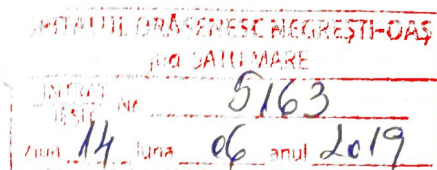 SPITALUL ORĂȘENESC NEGREȘTI-OAȘ
jud SATU MARE
INTRARE
IEȘIRE Nr 5163
ziua 14 luna 06 anul 2019